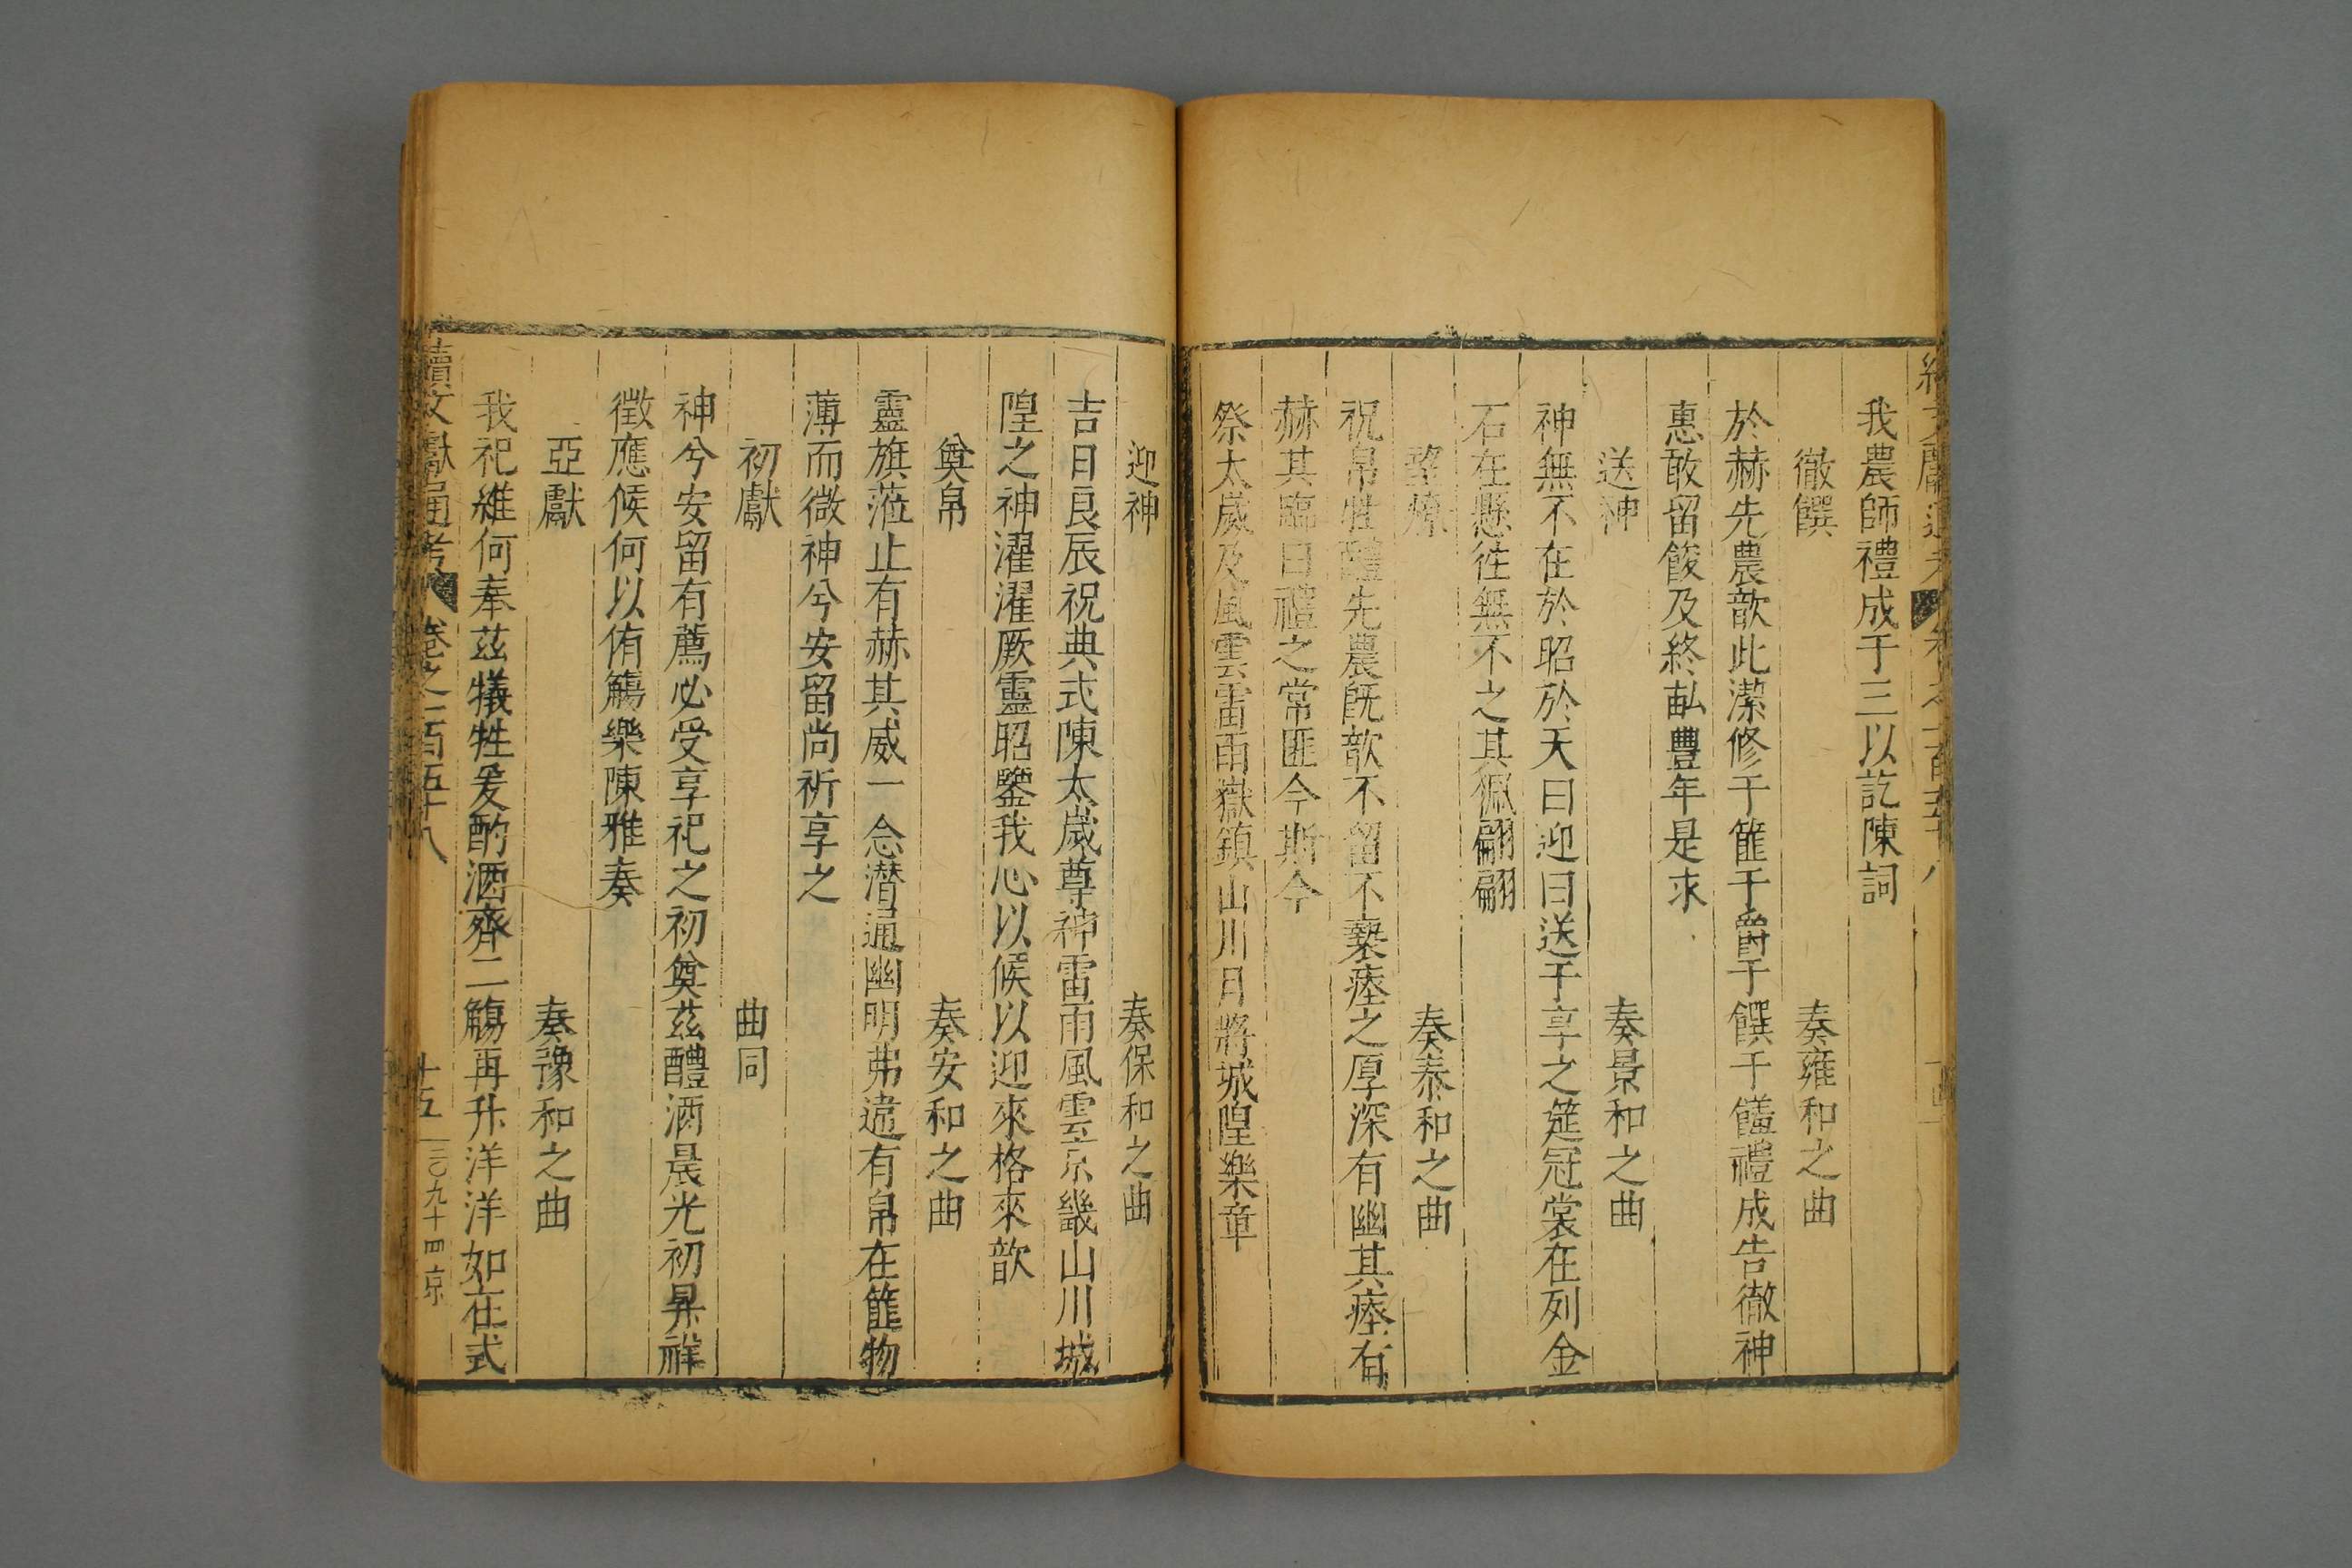 我農師禮成于三以訖陳詞
徹饌 奏雍和之曲
於赫先農歆此潔修于篚于爵于饌于饈禮成告徹神
惠敢留餕及終畝豐年是求
送神 奏景和之曲
神無不在於昭於天曰迎曰送于享之筵冠裳在列金
石在懸往無不之其佩翩翩
望燎 奏泰和之曲
祝帛牲醴先農既歆不留不褻瘞之厚深有幽其瘞有
赫其臨曰禮之常匪今斯今
祭太歲及風雲雷雨嶽鎮山川月將城隍樂章
迎神 奏保和之曲
吉日良辰祝典式陳太歲尊神雷雨風雲京畿山川城
隍之神濯濯厥靈昭鑒我心以候以迎來格來歆
奠帛 奏安和之曲
靈旗蒞止有赫其威一念潜通幽明弗違有帛在篚物
薄而微神兮安留尚祈享之
初獻 曲同
神兮安留有薦必受享祀之初奠茲醴酒晨光初昇祥
徵應候何以侑觴樂陳雅奏
亞獻 奏豫和之曲
我祀維何奉茲犧牲爰酌酒齊二觴再升洋洋如在式
續文獻通考 卷之一百五十八 十五 三〇九十四 京